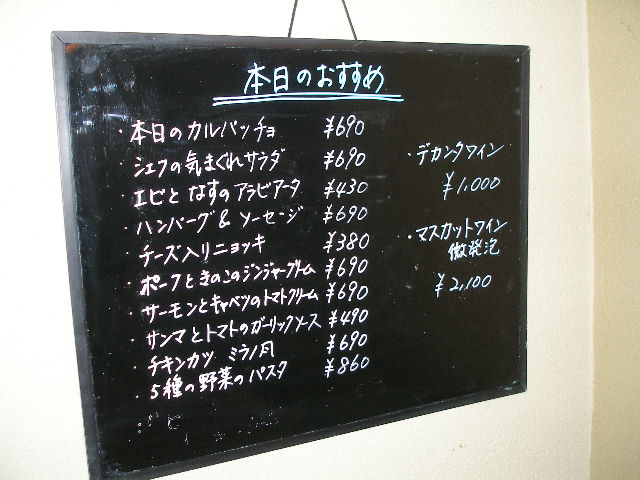 本日のおすすめ
・本日のカルパッチョ ¥690
・シェフの気まぐれサラダ ¥690
・エビとなすのアラビアータ ¥430
・ハンバーグ&ソーセージ ¥690
・チーズ入りニョッキ ¥380
・ポークときのこのジンジャークリーム ¥690
・サーモンとキャベツのトマトクリーム ¥690
・サンマとトマトのガーリックソース ¥490
・チキンカツ ミラノ風 ¥690
・5種の野菜のパスタ ¥860
・デカンタワイン
¥1,000
・マスカットワイン
微発泡
¥2,100